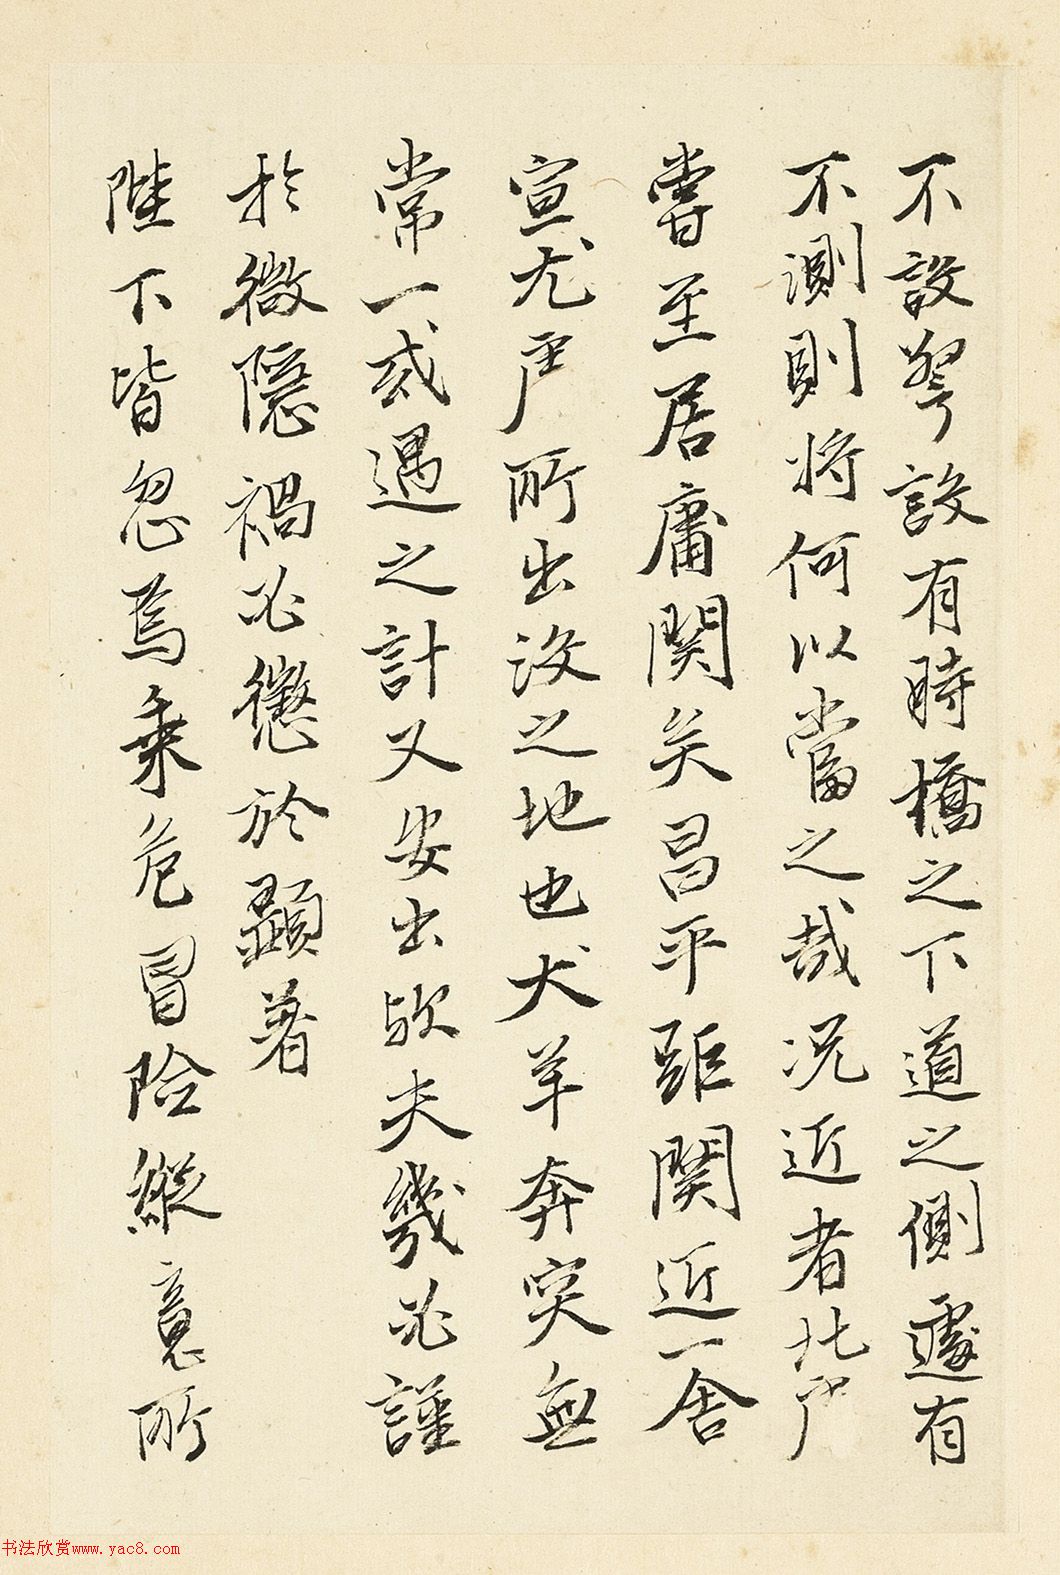 不設設有時橋之下道之側遽有
不測則將何以當之哉況近者北虜
嘗至居庸関矣昌平距関近一舍
宣尤虜所出沒之地也犬羊奔突無
常一或遇之計又安出歟夫幾必謹
於微隱禍必懲於顯著
陛下皆忽焉乘危冒險縱意所
书法欣赏www.yac8.com